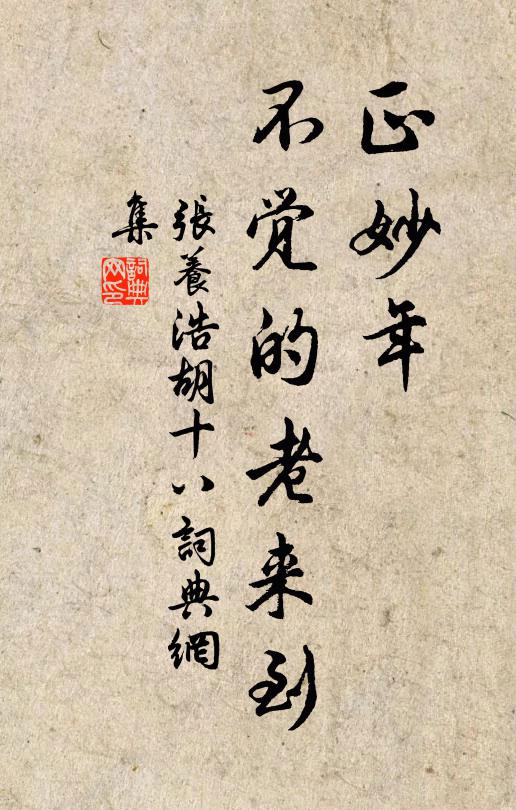 正妙年
不觉的老来到
張養浩胡十八詞典網
集
詞典
网印